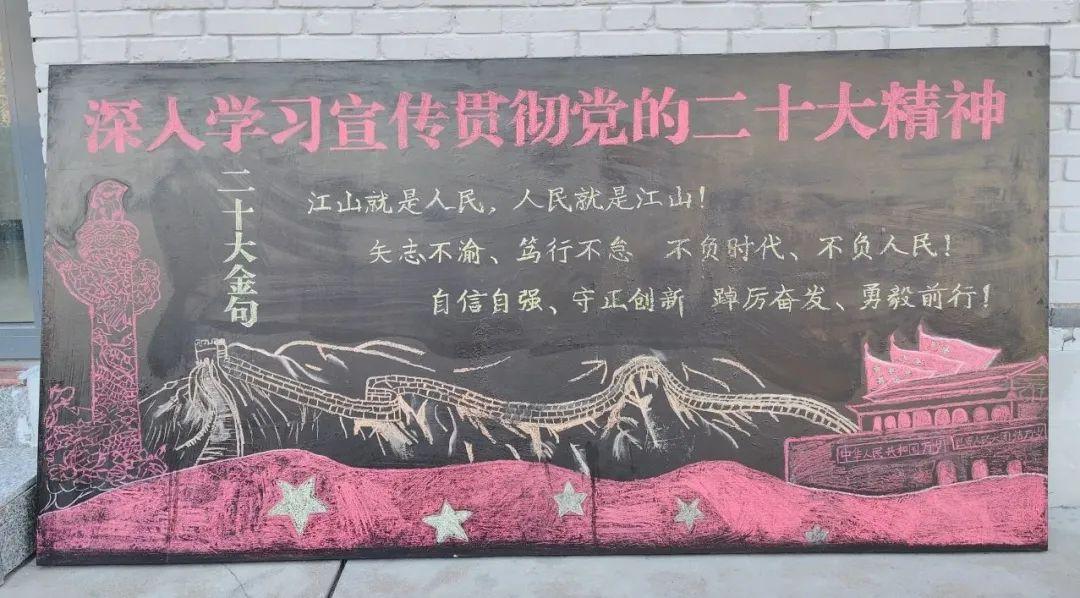 深入学习宣传贯彻党的二十大精神
二十大金句
江山就是人民，人民就是江山！
矢志不渝、笃行不怠 不负时代、不负人民！
自信自强、守正创新 踔厉奋发、勇毅前行！
中华人民共和国万岁